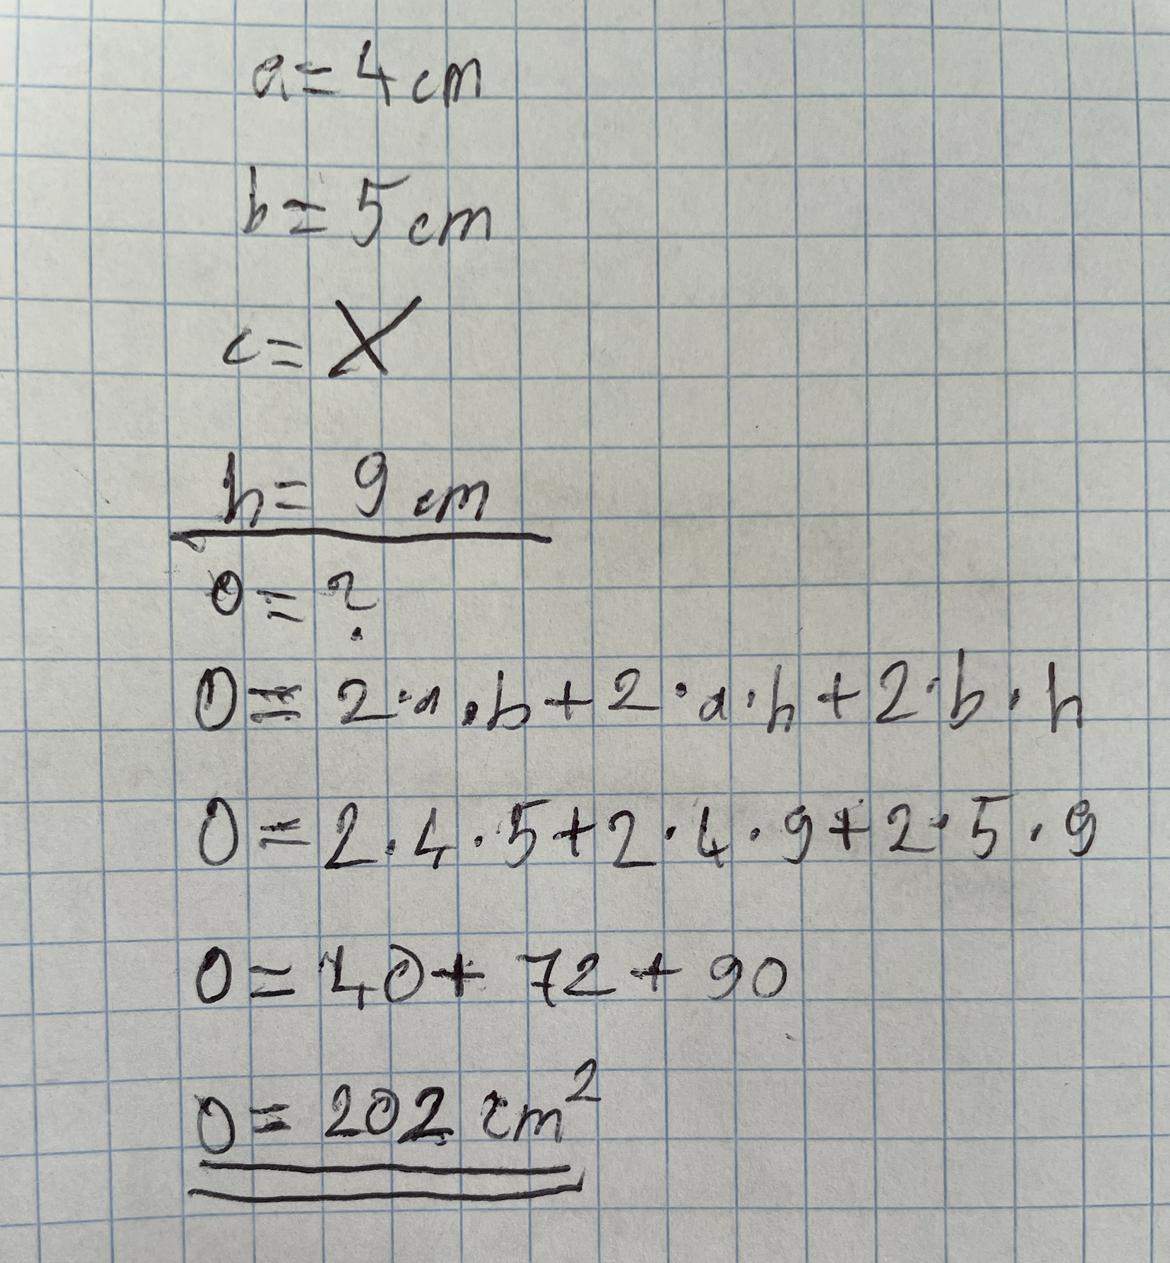 a = 4 cm
b = 5 cm
c = X
h = 9 cm
O = ?
O = 2 · a · b + 2 · a · h + 2 · b · h
O = 2 · 4 · 5 + 2 · 4 · 9 + 2 · 5 · 9
O = 40 + 72 + 90
O = 202 cm²